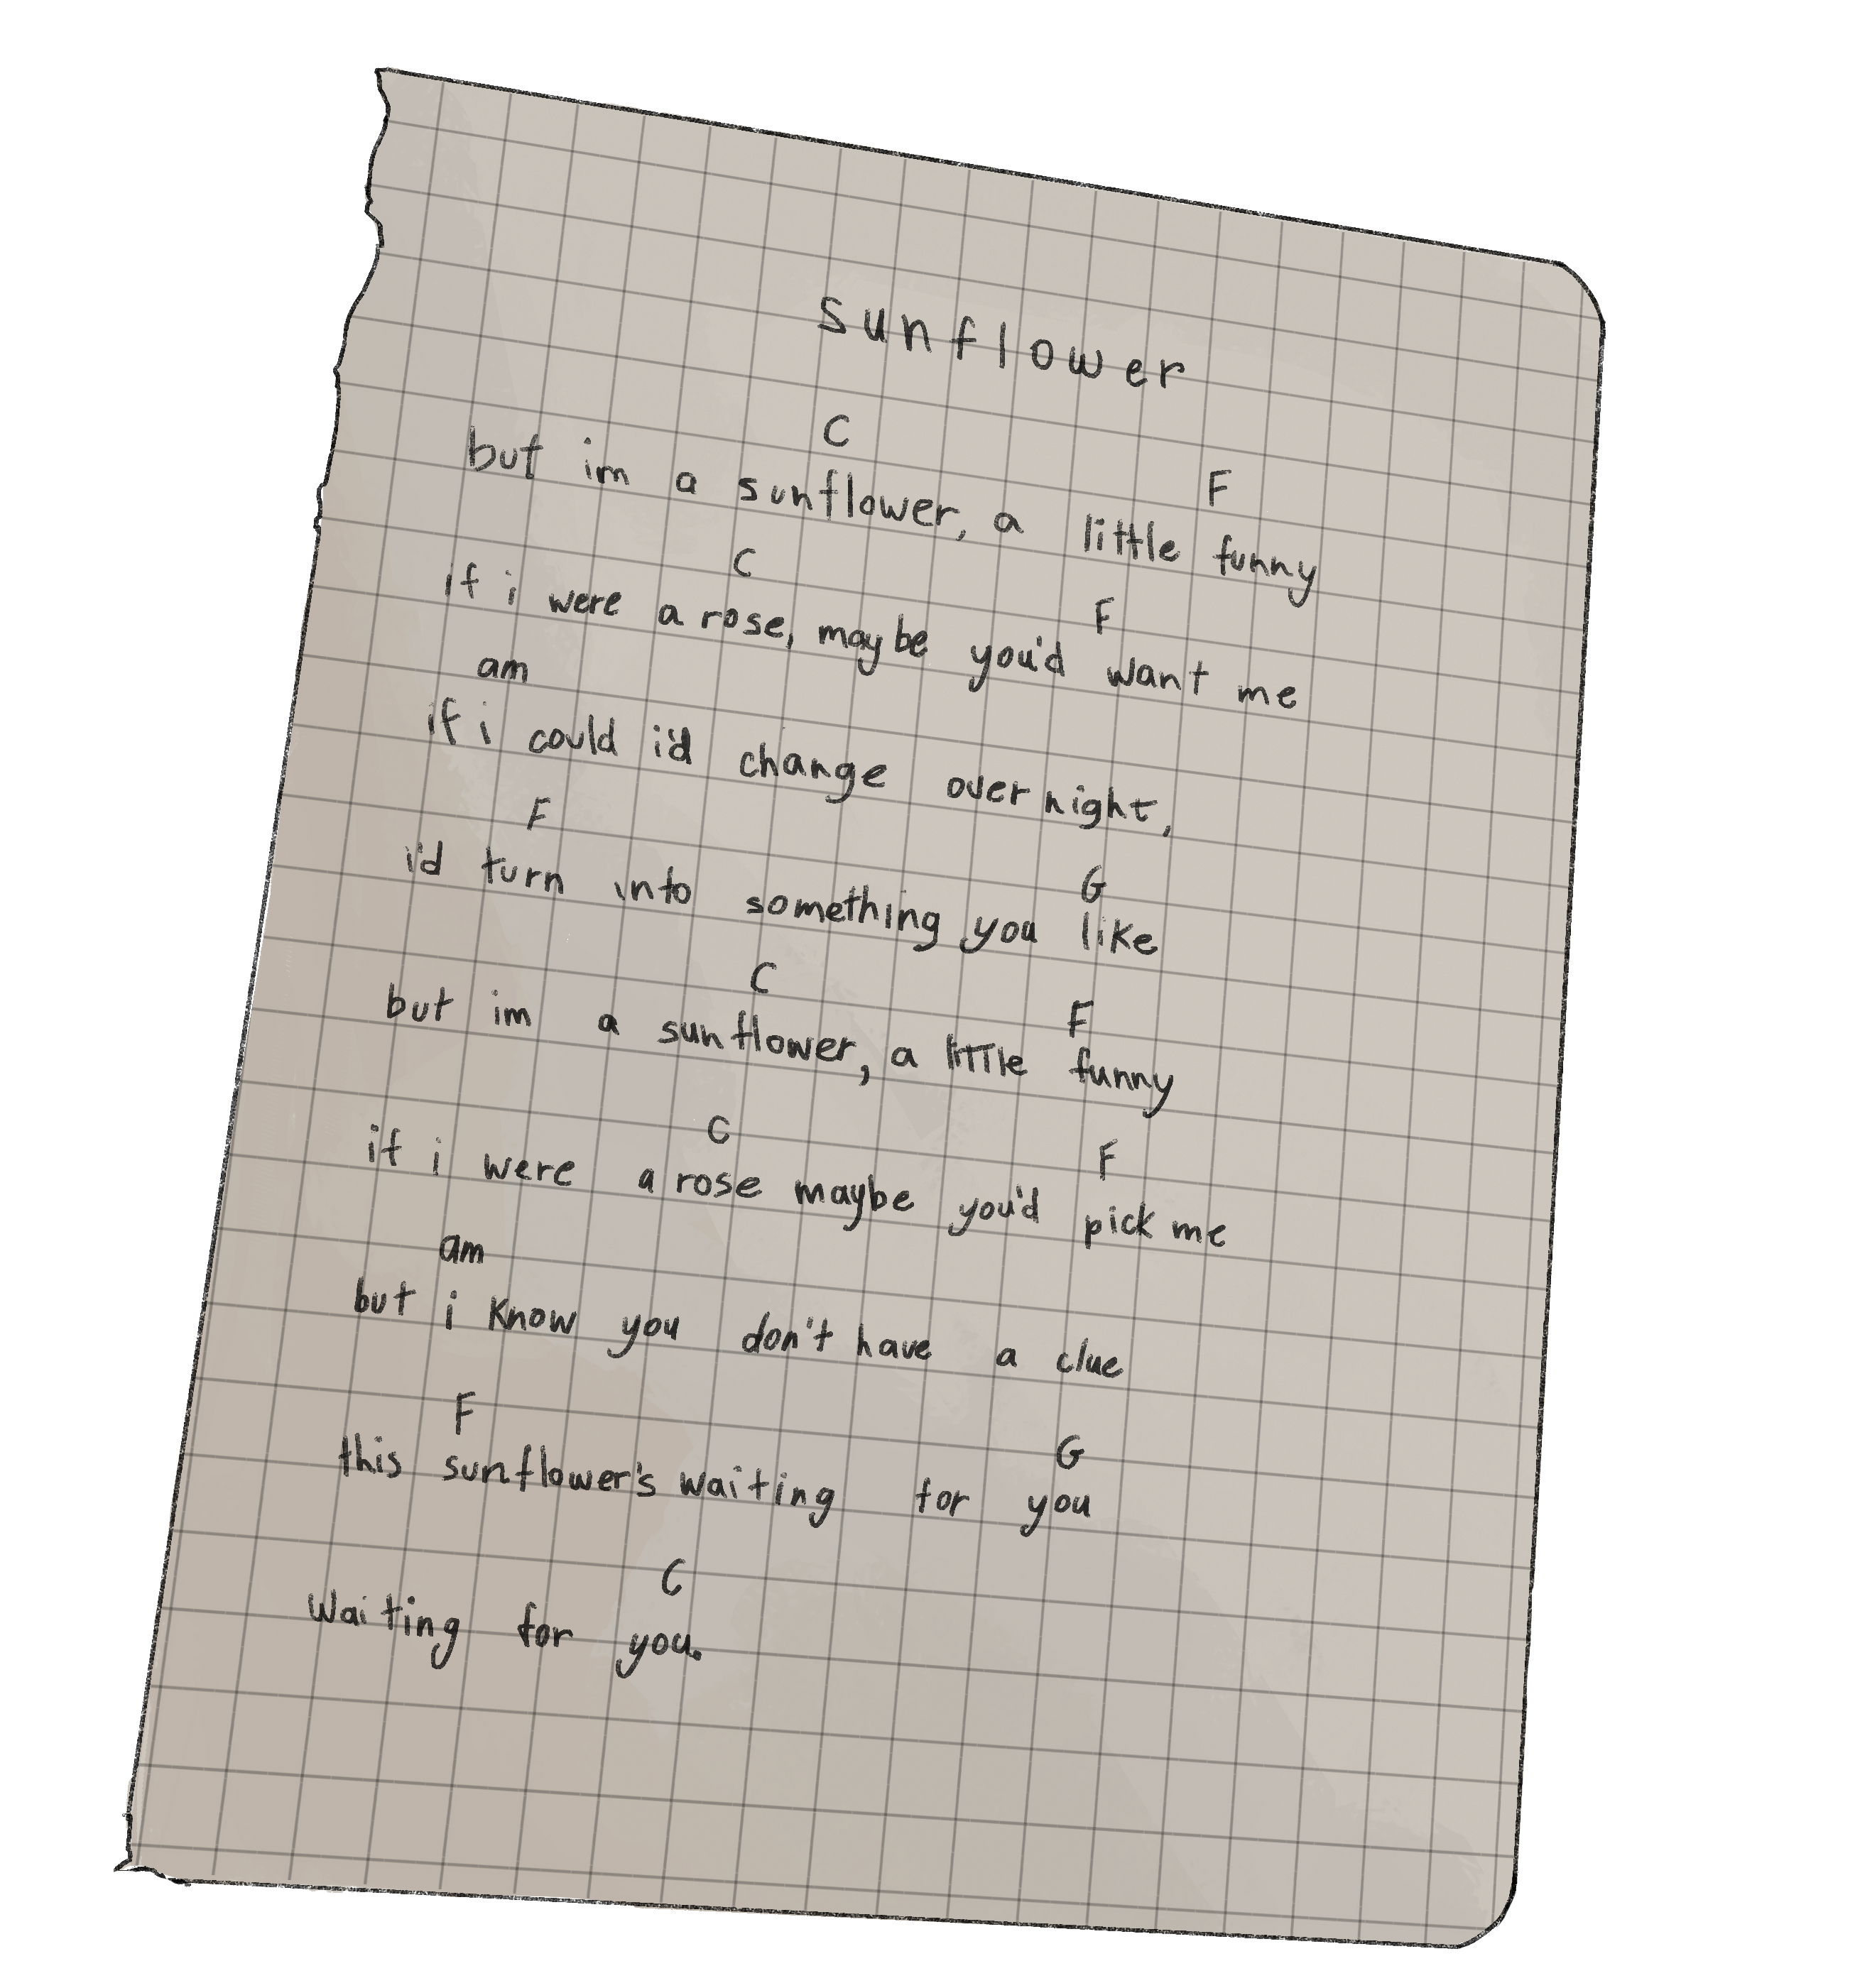 sunflower
C F
but im a sunflower, a little funny
C F
if i were a rose, maybe you'd want me
am
if i could i'd change over night,
F G
i'd turn into something you like
C F
but im a sunflower, a little funny
C F
if i were a rose maybe you'd pick me
am
but i know you don't have a clue
F G
this sunflower's waiting for you
C
waiting for you.